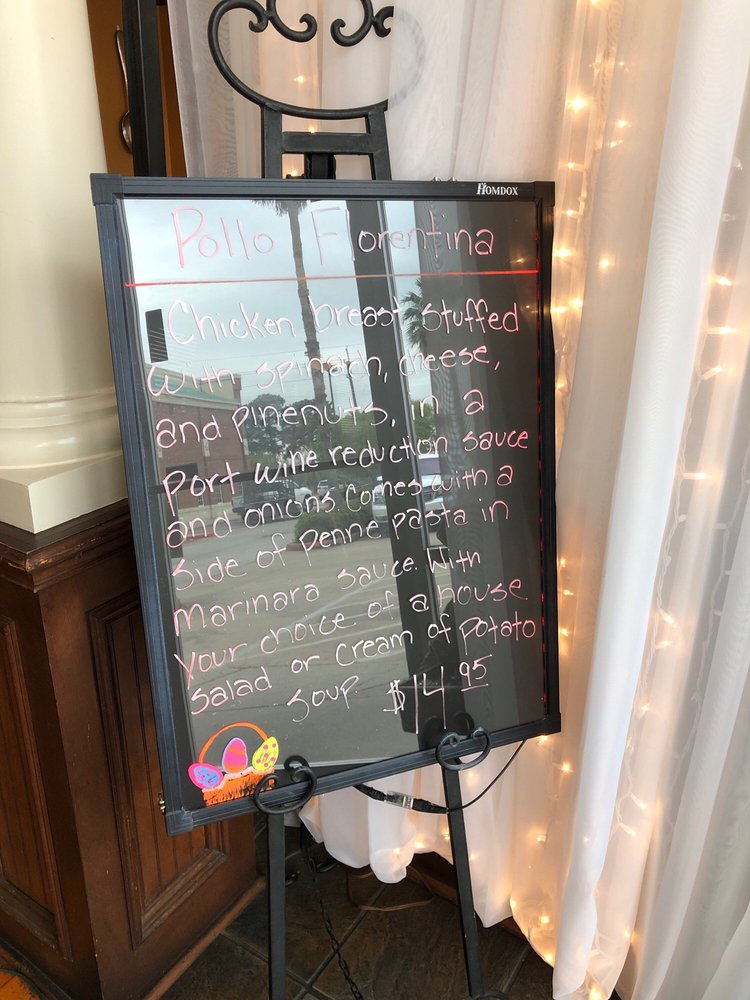 HOMDOX
Pollo Florentina
Chicken breast stuffed
with spinach, cheese,
and pinenuts, in a
port wine reduction sauce
and onions. Comes with a
side of penne pasta in
marinara sauce. With
your choice of a house
salad or cream of potato
soup. $14.95